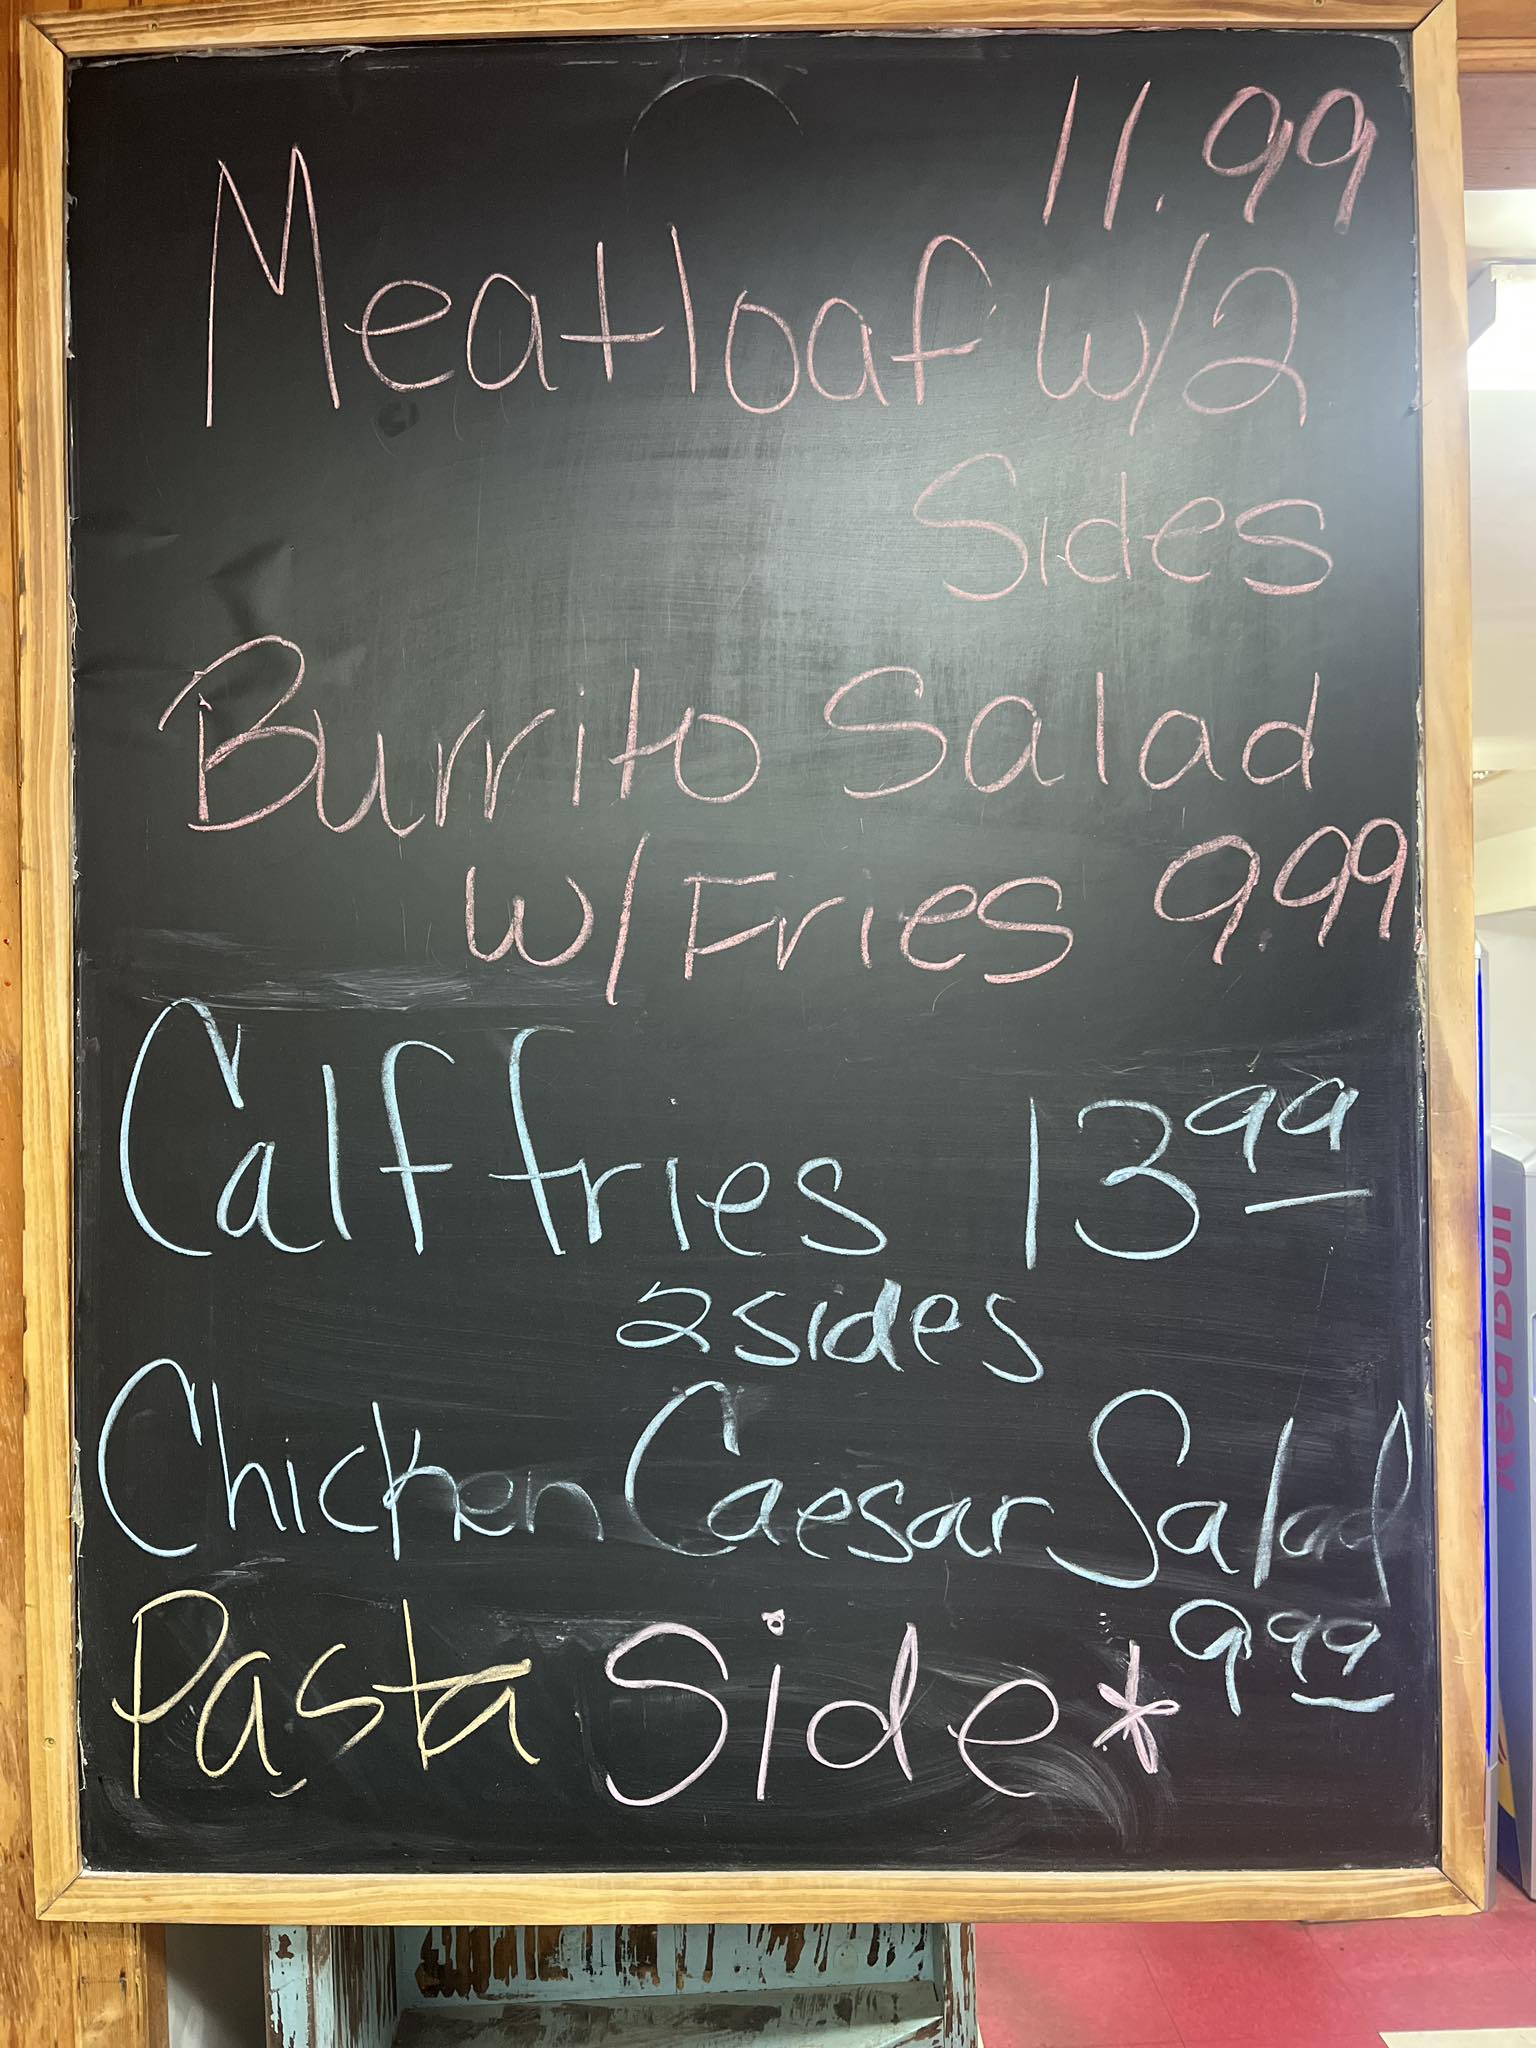 11.99
Meatloaf w/2
Sides
Burrito Salad
w/Fries 9.99
Calf fries 13.99
2 sides
Chicken Caesar Salad
9.99
Pasta Side*
Red Bull